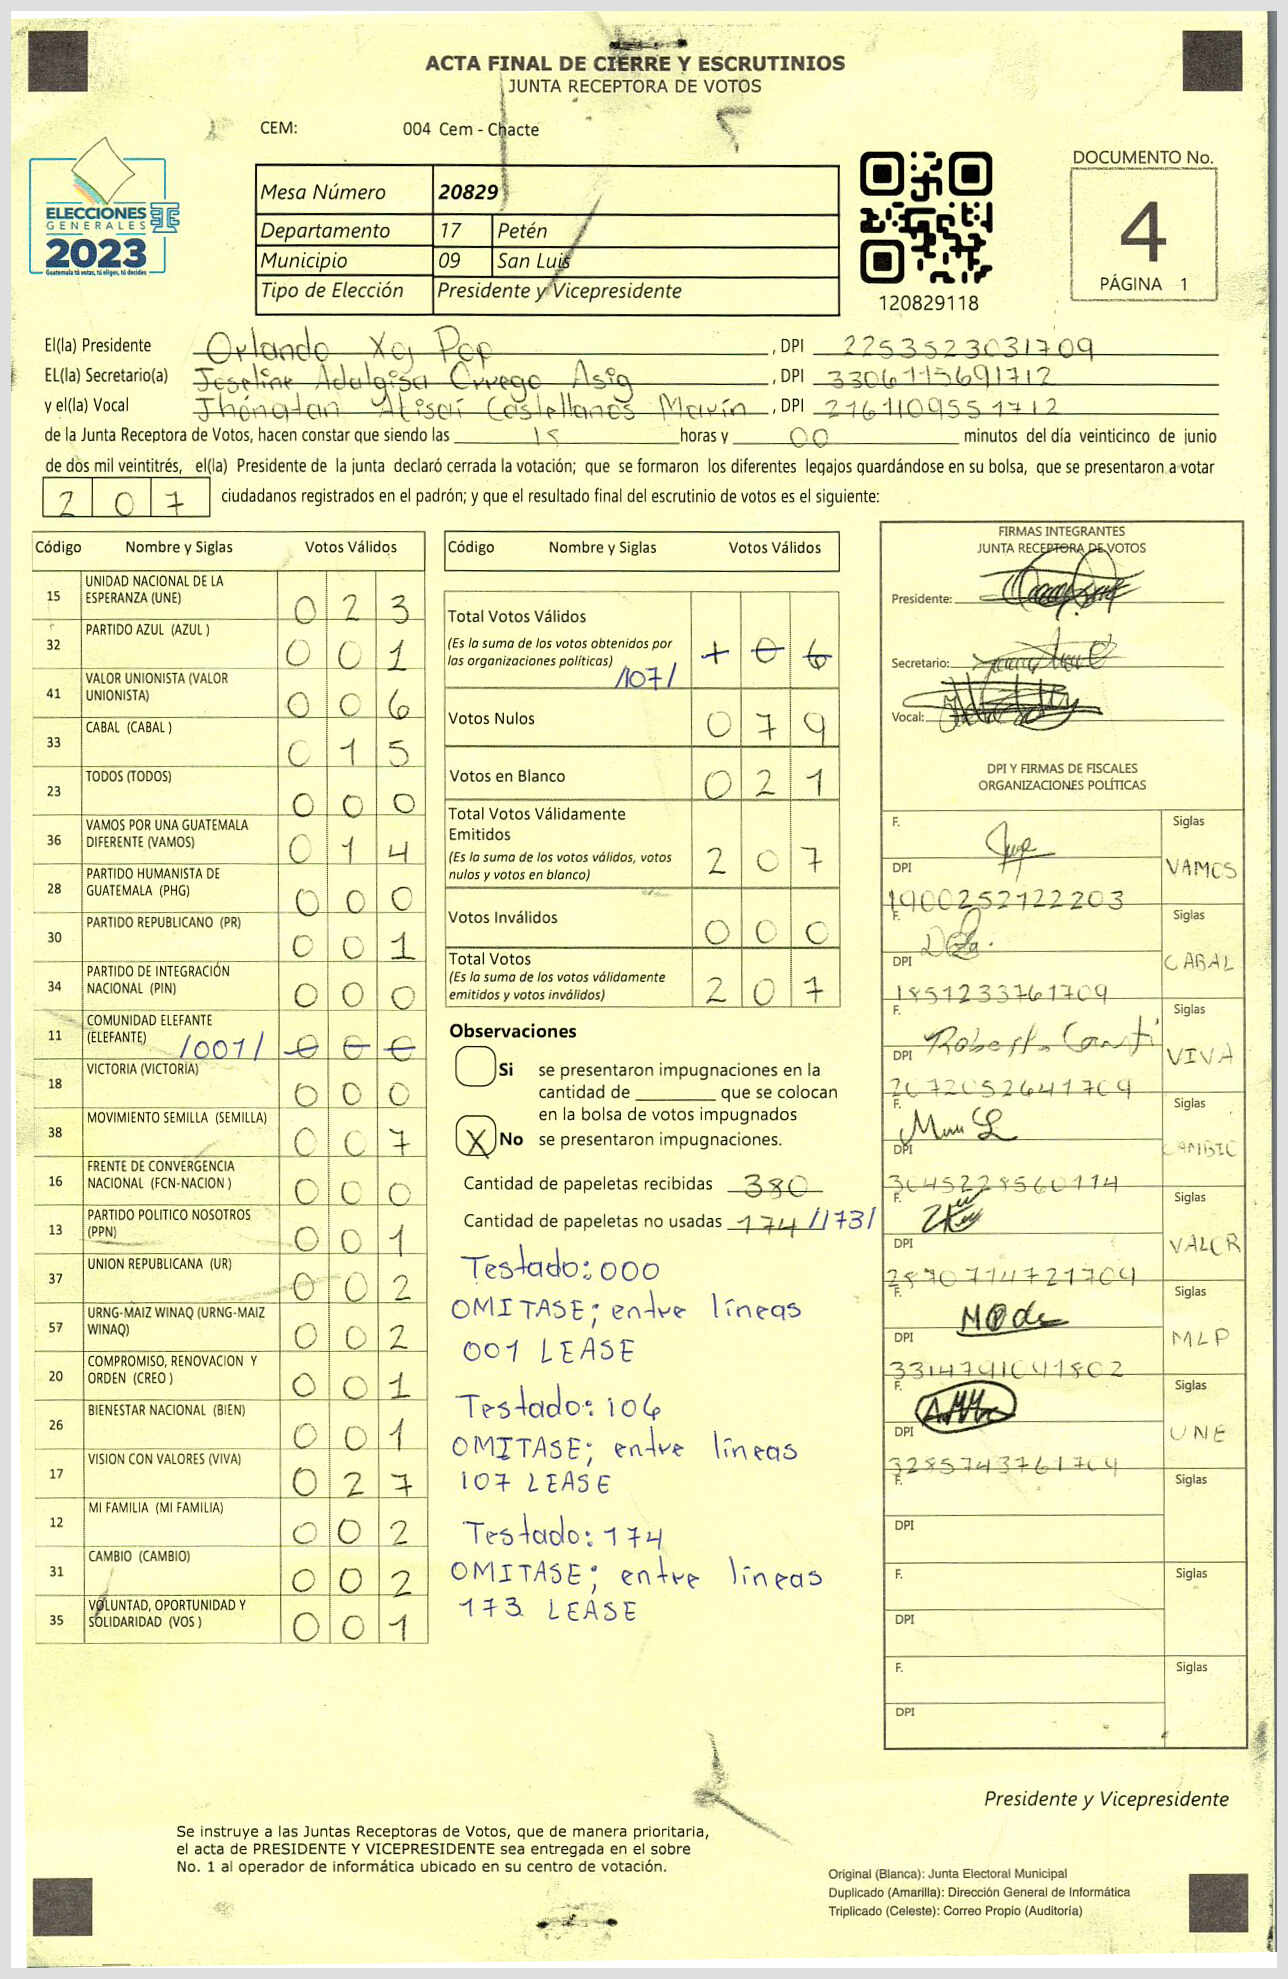 ACTA FINAL DE CIERRE Y ESCRUTINIOS
JUNTA RECEPTORA DE VOTOS
CEM: 004 Cem - Chacte
ELECCIONES
GENERALES
2023
Guatemala tú votas, tú eliges, tú decides
Mesa Número 20829
Departamento 17 Petén
Municipio 09 San Luis
Tipo de Elección Presidente y Vicepresidente
120829118
DOCUMENTO No.
4
PÁGINA 1
El(la) Presidente Orlando Xoj Pop, DPI 2253523031709
EL(la) Secretario(a) Joseline Adalgisa Orrego Asig, DPI 3306115691712
y el(la) Vocal Jhónatan Alisaí Castellanos Marín, DPI 2161109551712
de la Junta Receptora de Votos, hacen constar que siendo las 15 horas y 00 minutos del día veinticinco de junio
de dos mil veintitrés, el(la) Presidente de la junta declaró cerrada la votación; que se formaron los diferentes legajos guardándose en su bolsa, que se presentaron a votar
207 ciudadanos registrados en el padrón; y que el resultado final del escrutinio de votos es el siguiente:
Código Nombre y Siglas Votos Válidos
15 UNIDAD NACIONAL DE LA ESPERANZA (UNE) 023
32 PARTIDO AZUL (AZUL ) 001
41 VALOR UNIONISTA (VALOR UNIONISTA) 006
33 CABAL (CABAL ) 015
23 TODOS (TODOS) 000
36 VAMOS POR UNA GUATEMALA DIFERENTE (VAMOS) 014
28 PARTIDO HUMANISTA DE GUATEMALA (PHG) 000
30 PARTIDO REPUBLICANO (PR) 001
34 PARTIDO DE INTEGRACIÓN NACIONAL (PIN) 000
11 COMUNIDAD ELEFANTE (ELEFANTE) /001/ 000
18 VICTORIA (VICTORIA) 000
38 MOVIMIENTO SEMILLA (SEMILLA) 007
16 FRENTE DE CONVERGENCIA NACIONAL (FCN-NACION ) 000
13 PARTIDO POLITICO NOSOTROS (PPN) 001
37 UNION REPUBLICANA (UR) 002
57 URNG-MAIZ WINAQ (URNG-MAIZ WINAQ) 002
20 COMPROMISO, RENOVACION Y ORDEN (CREO ) 001
26 BIENESTAR NACIONAL (BIEN) 001
17 VISION CON VALORES (VIVA) 027
12 MI FAMILIA (MI FAMILIA) 002
31 CAMBIO (CAMBIO) 002
35 VOLUNTAD, OPORTUNIDAD Y SOLIDARIDAD (VOS ) 001
Código Nombre y Siglas Votos Válidos
Total Votos Válidos
(Es la suma de los votos obtenidos por
las organizaciones políticas) /107/ 106
Votos Nulos 079
Votos en Blanco 021
Total Votos Válidamente
Emitidos
(Es la suma de los votos válidos, votos
nulos y votos en blanco) 207
Votos Inválidos 000
Total Votos
(Es la suma de los votos válidamente
emitidos y votos inválidos) 207
Observaciones
Si se presentaron impugnaciones en la
cantidad de ________ que se colocan
en la bolsa de votos impugnados
X No se presentaron impugnaciones.
Cantidad de papeletas recibidas 380
Cantidad de papeletas no usadas 174 /173/
Testado: 000
OMITASE; entre líneas
001 LEASE
Testado: 106
OMITASE; entre líneas
107 LEASE
Testado: 174
OMITASE; entre líneas
173 LEASE
FIRMAS INTEGRANTES
JUNTA RECEPTORA DE VOTOS
Presidente:
Secretario:
Vocal:
DPI Y FIRMAS DE FISCALES
ORGANIZACIONES POLÍTICAS
F. Siglas
DPI 1900252122203 VAMOS
F. Siglas
DPI 1851233761709 CABAL
F. Siglas
DPI 2072052641709 VIVA
F. Siglas
DPI 3045228560114 CAMBIO
F. Siglas
DPI 2870714721709 VALOR
F. Siglas
DPI 3314791041802 MLP
F. Siglas
DPI 3285743761709 UNE
F. Siglas
DPI
F. Siglas
DPI
F. Siglas
DPI
Presidente y Vicepresidente
Se instruye a las Juntas Receptoras de Votos, que de manera prioritaria,
el acta de PRESIDENTE Y VICEPRESIDENTE sea entregada en el sobre
No. 1 al operador de informática ubicado en su centro de votación.
Original (Blanca): Junta Electoral Municipal
Duplicado (Amarilla): Dirección General de Informática
Triplicado (Celeste): Correo Propio (Auditoría)